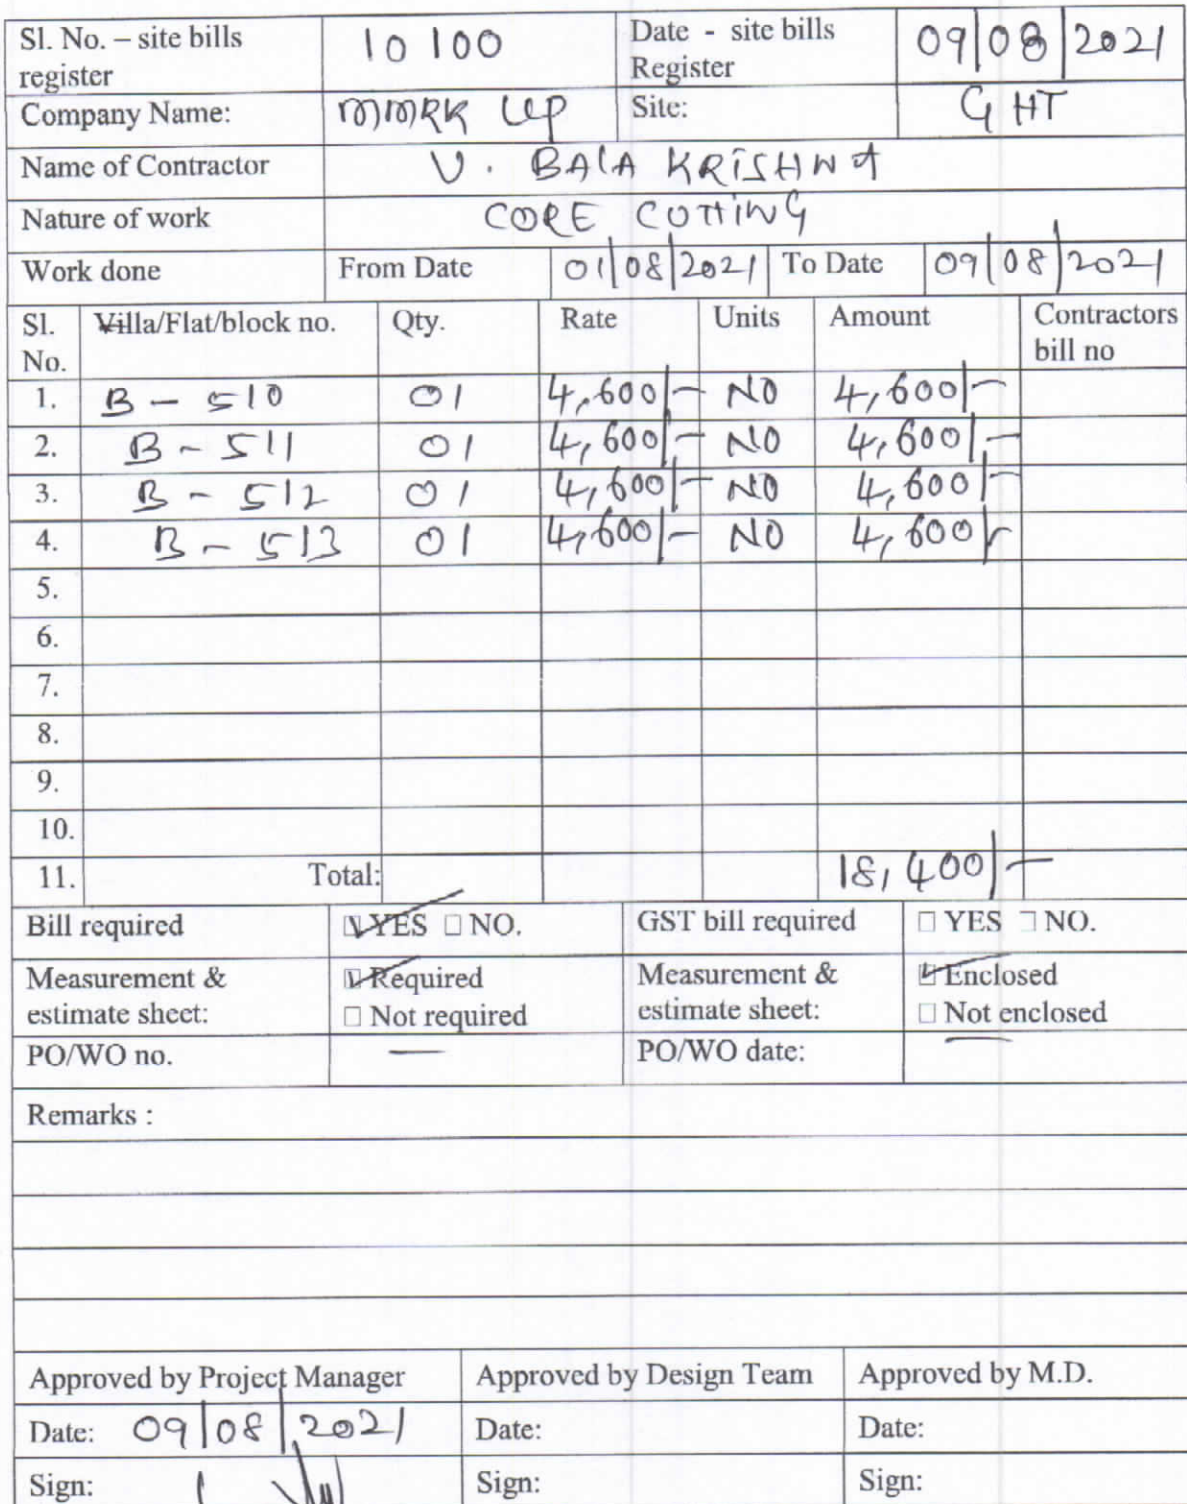 Sl. No. – site bills register 10 100 Date - site bills Register 09/08/2021
Company Name: MMRK LLP Site: GHT
Name of Contractor V. BALA KRISHNA
Nature of work CORE CUTTING
Work done From Date 01/08/2021 To Date 09/08/2021
Sl. No. Villa/Flat/block no. Qty. Rate Units Amount Contractors bill no
1. B - 510 01 4,600/- NO 4,600/-
2. B - 511 01 4,600/- NO 4,600/-
3. B - 512 01 4,600/- NO 4,600/-
4. B - 513 01 4,600/- NO 4,600/-
5.
6.
7.
8.
9.
10.
11. Total: 18,400/-
Bill required ☑ YES □ NO. GST bill required □ YES □ NO.
Measurement & estimate sheet: ☑ Required □ Not required Measurement & estimate sheet: ☑ Enclosed □ Not enclosed
PO/WO no. — PO/WO date: —
Remarks :
Approved by Project Manager Approved by Design Team Approved by M.D.
Date: 09/08/2021 Date: Date:
Sign: Sign: Sign: